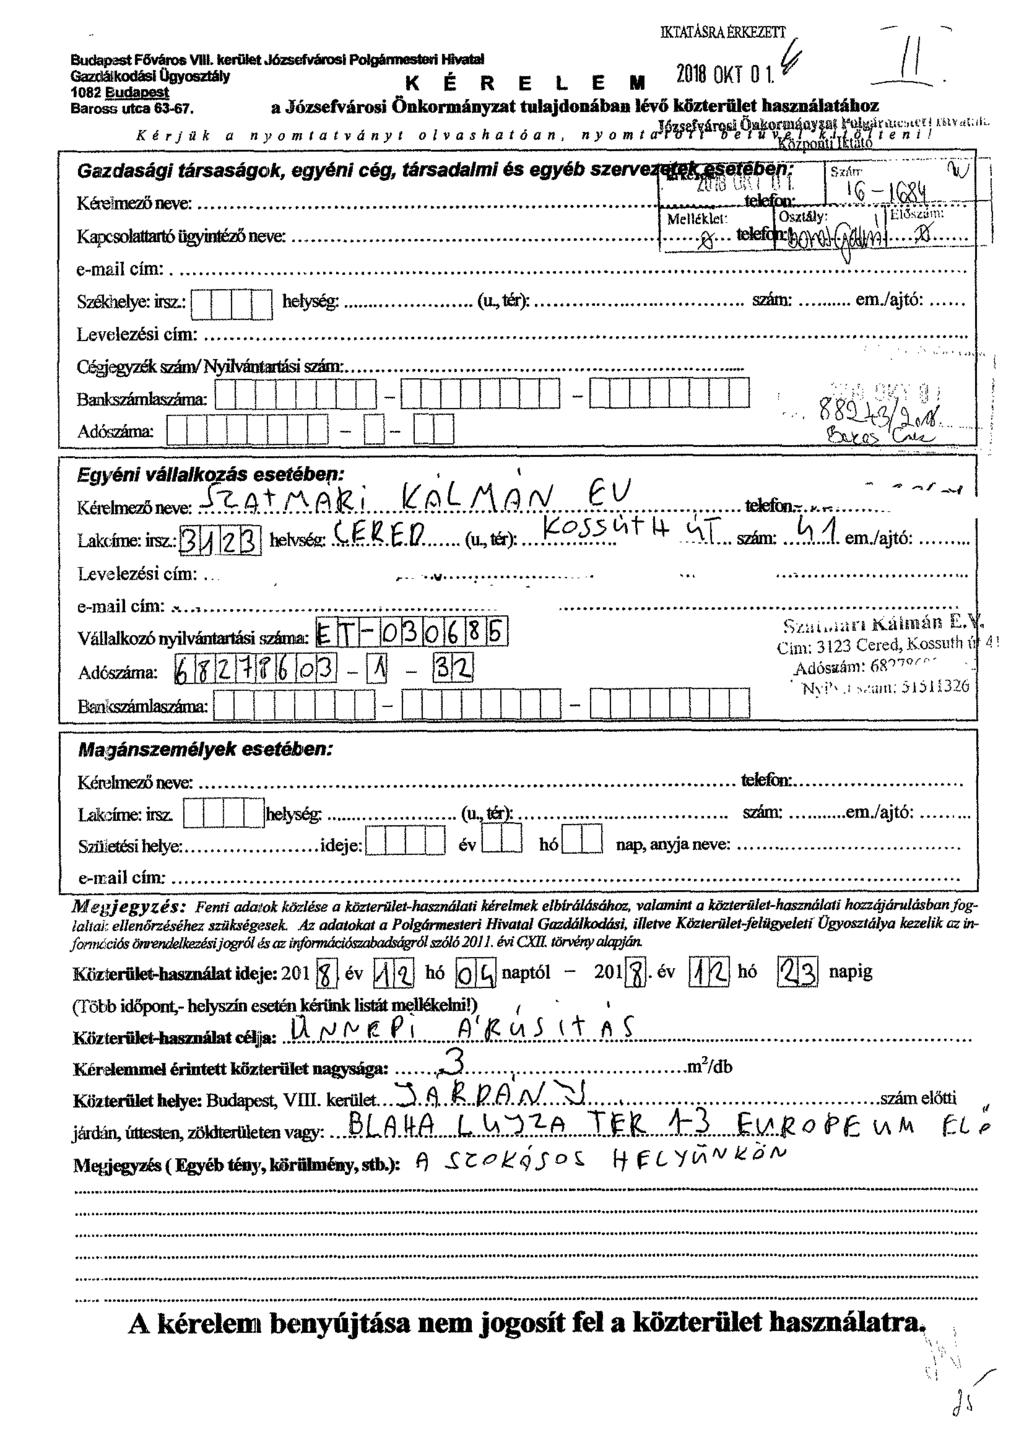 IKTATÁSRA ÉRKEZETT
2018 OKT 01.
II.
Budapest Főváros VIII. kerület Józsefvárosi Polgármesteri Hivatal
Gazdálkodási Ügyosztály
1082 Budapest
Baross utca 63-67.
K É R E L E M
a Józsefvárosi Önkormányzat tulajdonában lévő közterület használatához
Kérjük a nyomtatványt olvashatóan, nyomtatott betűvel kitölteni!
Józsefvárosi Önkormányzat Polgármesteri Hivatal
Központi Iktató
Gazdasági társaságok, egyéni cég, társadalmi és egyéb szervezetek esetében:
Érkezett: 2018 OKT 01.
Szám: 16-1684
Kérelmező neve: telefon:
Melléklet: Ø Osztály: Előszám: Ø
Kapcsolattartó ügyintéző neve: telefon:
e-mail cím:
Székhelye: irsz.: helység: (u., tér): szám: em./ajtó:
Levelezési cím:
Cégjegyzék szám/ Nyilvántartási szám:
Bankszámlaszáma: - -
Adószáma: - -
Egyéni vállalkozás esetében:
Kérelmező neve: SZATMÁRI KÁLMÁN EV telefon:
Lakcíme: irsz.: 3123 helység: CERED (u., tér): KOSSUTH ÚT szám: 41 em./ajtó:
Levelezési cím:
e-mail cím:
Vállalkozó nyilvántartási száma: ET-030685
Szatmári Kálmán E.V.
Cím: 3123 Cered, Kossuth út 41
Adószáma: 68278603 - 1 - 32
Adószám:
szám: 51511326
Bankszámlaszáma: - -
Magánszemélyek esetében:
Kérelmező neve: telefon:
Lakcíme: irsz. helység: (u., tér): szám: em./ajtó:
Születési helye: ideje: év hó nap, anyja neve:
e-mail cím:
Megjegyzés: Fenti adatok közlése a közterület-használati kérelmek elbírálásához, valamint a közterület-használati hozzájárulásban fog-
laltak ellenőrzéséhez szükségesek. Az adatokat a Polgármesteri Hivatal Gazdálkodási, illetve Közterület-felügyeleti Ügyosztálya kezelik az in-
formációs önrendelkezési jogról és az információszabadságról szóló 2011. évi CXII. törvény alapján.
Közterület-használat ideje: 2018 év 12 hó 04 naptól - 2018. év 12 hó 23 napig
(Több időpont,- helyszín esetén kérünk listát mellékelni!)
Közterület-használat célja: ÜNNEPI ÁRUSÍTÁS
Kérelemmel érintett közterület nagysága: 3 m²/db
Közterület helye: Budapest, VIII. kerület JÁRDÁN szám előtti
járdán, úttesten, zöldterületen vagy: BLAHA LUJZA TÉR 1-3 EUROPEUM ELŐ
Megjegyzés ( Egyéb tény, körülmény, stb.): A SZOKÁSOS HELYÜNKÖN
A kérelem benyújtása nem jogosít fel a közterület használatra.